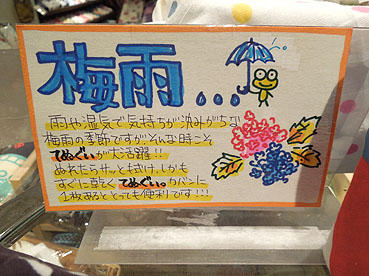 梅雨...
雨や湿気で気持ちが沈みがちな
梅雨の季節ですが、そんな時こそ
てぬぐいが大活躍!!
ぬれたらサッと拭け、しかも
すぐに乾く てぬぐい。カバンに
1枚あるととっても便利です!!!